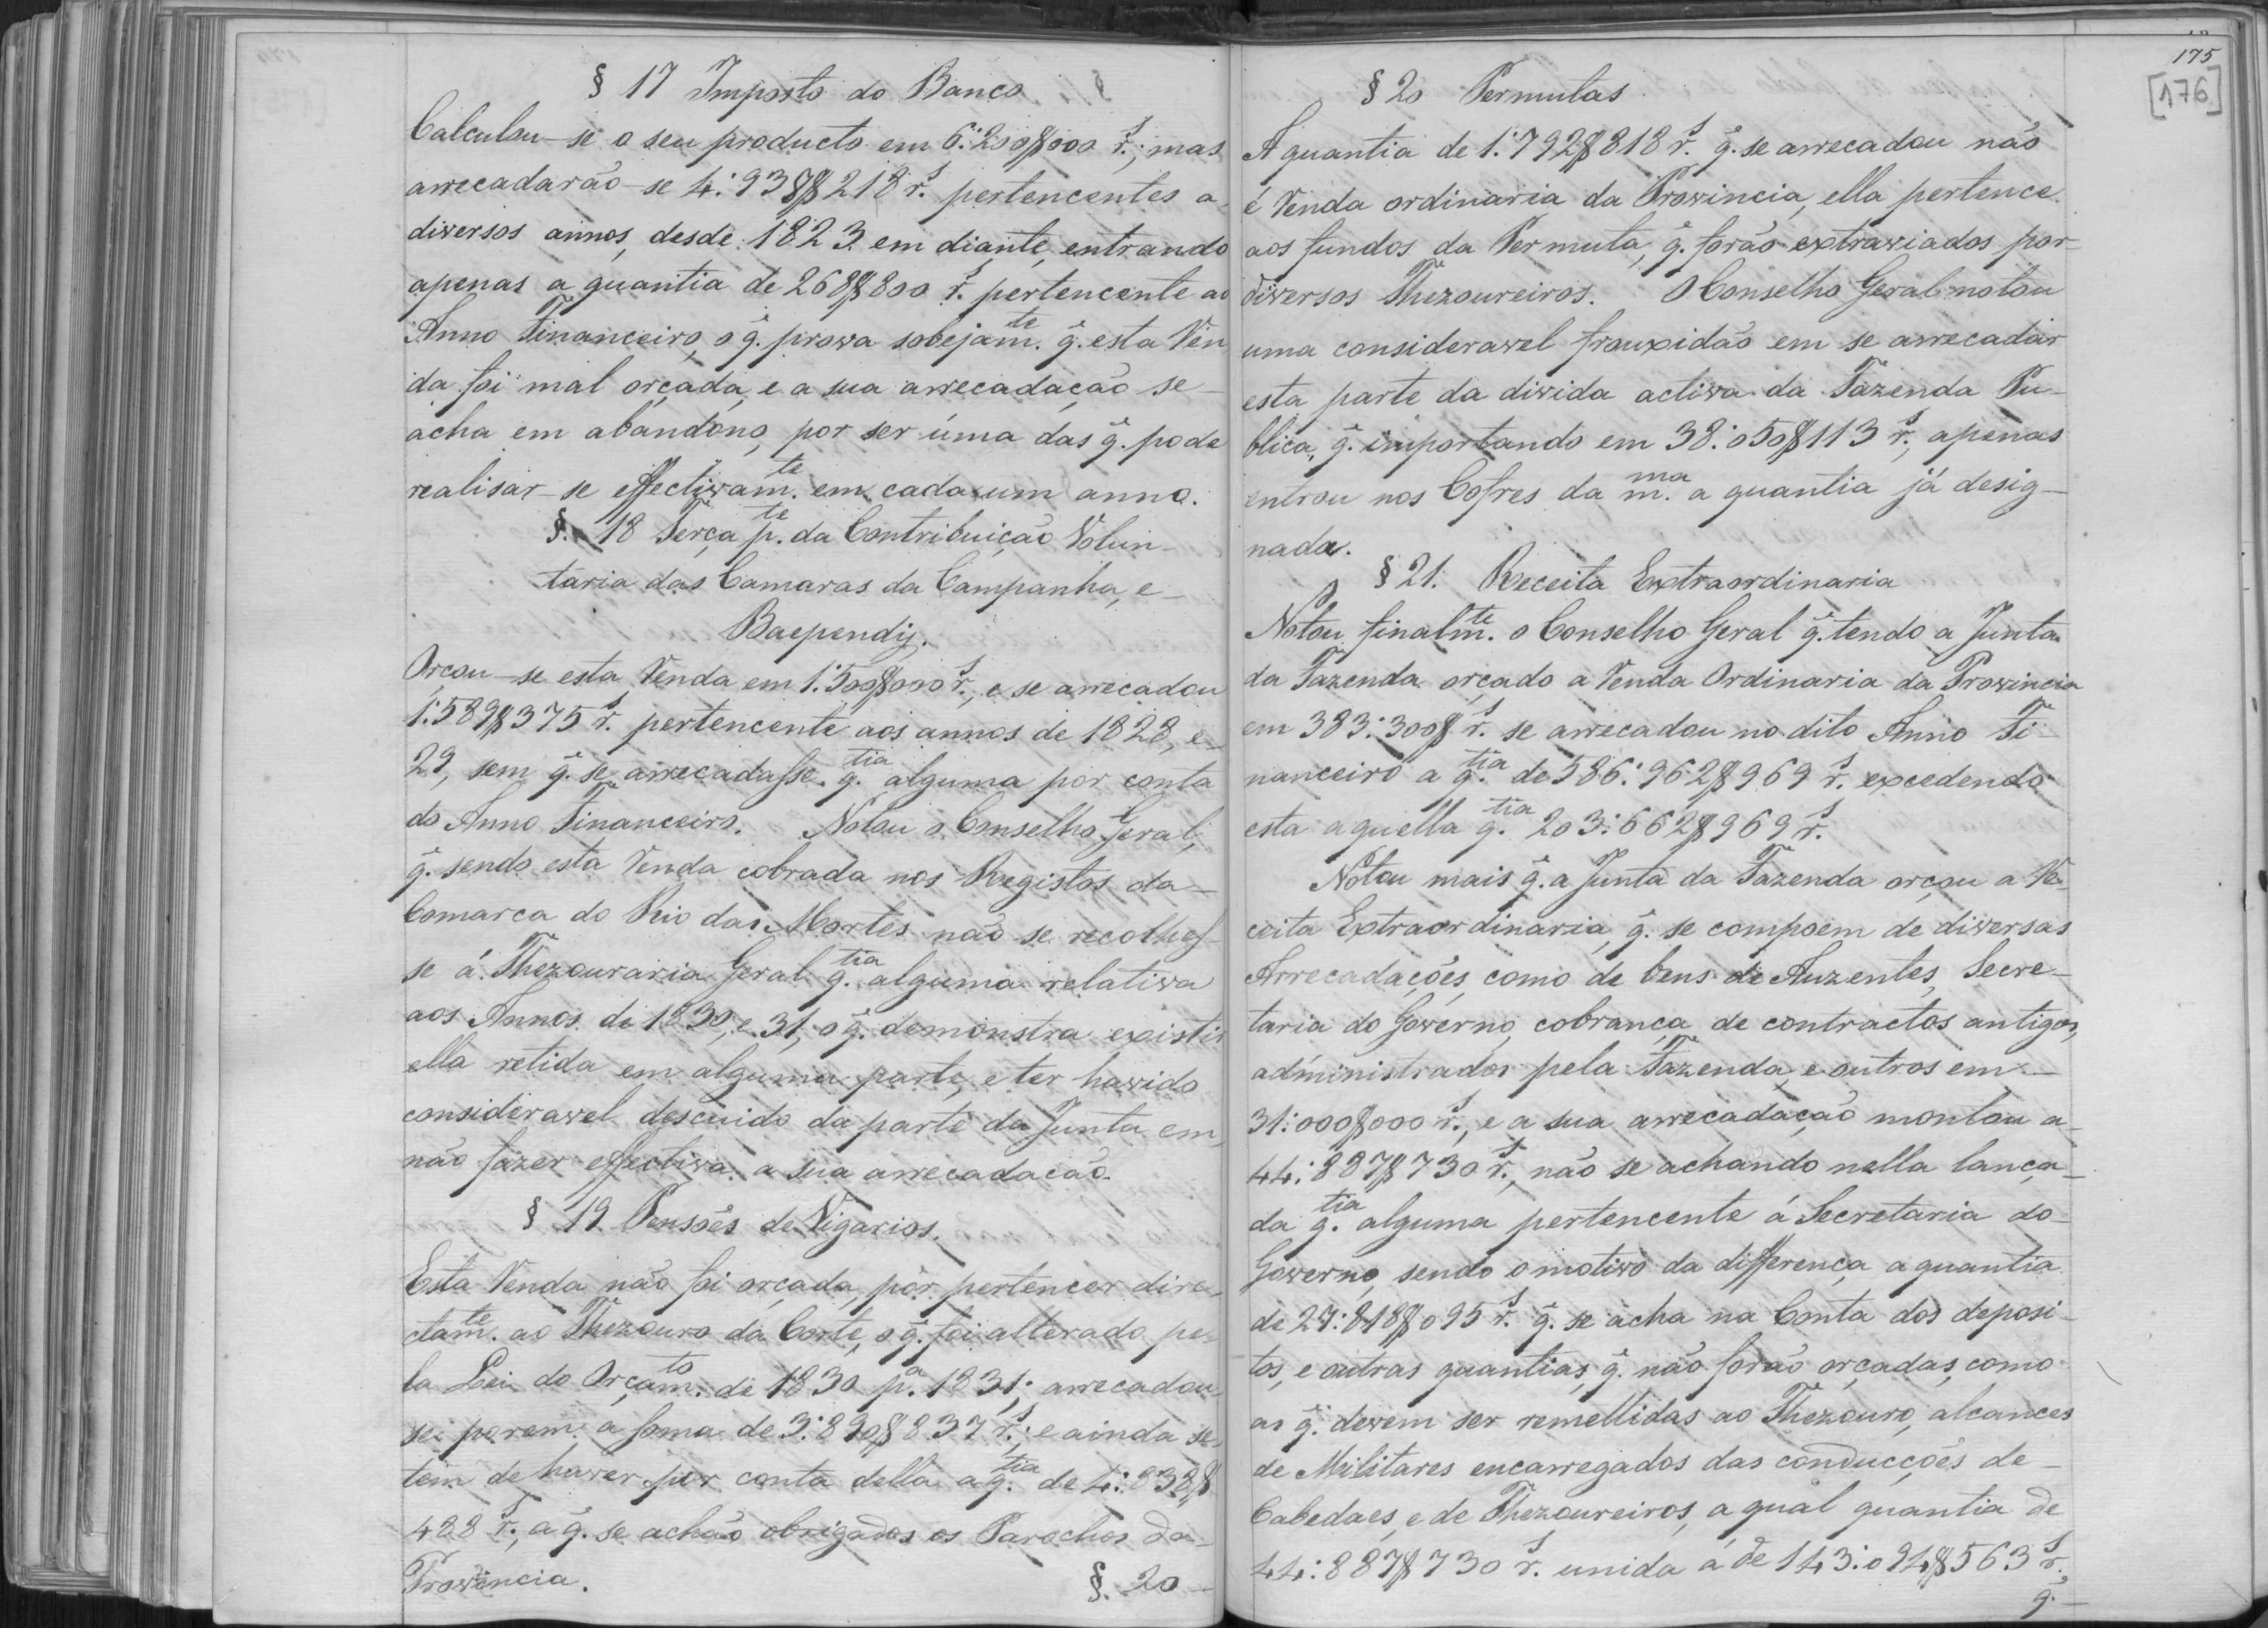 § 17 Imposto do Banco
Calculou-se o seu producto em 6:200$000 r.s; mas
arrecadarão-se 4:937$218 r.s pertencentes a
diversos annos, desde 1823 em diante, entrando
apenas a quantia de 268$800 r.s pertencente ao
Anno Financeiro, o q̃. prova sobejam.te q̃. esta Ren
da foi mal orçada, e a sua arrecadação se-
acha em abandono, por ser uma das q̃. pode
realisar-se effectivam.te em cada um anno.
§. 18 Terça p.te da Contribuição Volun-
taria das Camaras da Campanha, e-
Baependy.
Orçou-se esta Renda em 1:500$000 r.s, e se arrecadou
1:589$375 r.s pertencente aos annos de 1828, e-
29, sem q̃. se arrecadasse q.tia alguma por conta
do Anno Financeiro. Notou o Conselho Geral,
q̃. sendo esta Renda cobrada nos Registos da-
Comarca do Rio das Mortes não se recolhes-
se á Thezouraria Geral q.tia alguma relativa
aos Annos de 1830, e 31, o q̃. demonstra existir
ella retida em alguma parte, e ter havido
consideravel descuido da parte da Junta em
não fazer effectiva a sua arrecadação.
§ 19 Pensões de Vigarios.
Esta Renda não foi orçada, por pertencer dire-
ctam.te ao Thezouro da Corte, o q̃. foi alterado pe-
la Lei do Orçam.to de 1830 p.a 1831; arrecadou
se porem a soma de 3:890$837 r.s; e ainda se
tem de haver por conta della a q.tia de 4:838$
488 r.s, a q̃. se achão obrigados os Parochos da-
Provincia.
§. 20-
175
[176]
§ 20 Permutas
A quantia de 1:792$818 r.s q̃. se arrecadou não
é Renda ordinaria da Provincia, ella pertence
aos fundos da Permuta, q̃. forão extraviados por-
diversos Thezoureiros. O Conselho Geral notou
uma consideravel frouxidão em se arrecadar
esta parte da divida activa da Fazenda Pu-
blica, q̃. importando em 38:050$113 r.s, apenas
entrou nos Cofres da m.ma a quantia já desig-
nada.
§ 21. Receita Extraordinaria
Notou finalm.te o Conselho Geral q̃. tendo a Junta
da Fazenda orçado a Renda Ordinaria da Provincia
em 383:300$ r.s se arrecadou no dito Anno Fi-
nanceiro a q.tia de 586:962$969 r.s excedendo
esta aquella q.tia 203:662$969 r.s
Notou mais q̃. a Junta da Fazenda orçou a Re-
ceita Extraordinaria, q̃. se compoem de diversas
Arrecadações, como de bens de Auzentes, Secre-
taria do Governo, cobrança de contractos antigos,
administrados pela Fazenda, e outros em-
31:000$000 r.s, e a sua arrecadação montou a-
44:887$730 r.s, não se achando nella lança-
da q.tia alguma pertencente á Secretaria do-
Governo, sendo o motivo da differença a quantia
de 27:818$095 r.s q̃. se acha na Conta dos deposi-
tos, e outras quantias, q̃. não forão orçadas, como
as q̃. devem ser remettidas ao Thezouro, alcances
de Militares encarregados das conducções de-
Cabedaes, e de Thezoureiros, a qual quantia de
44:887$730 r.s unida á de 143:094$563 r.s,
q̃.-